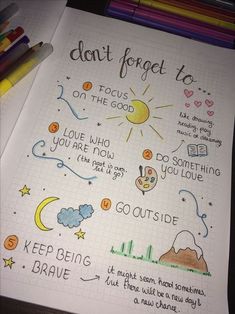 don't forget to ---
1 FOCUS
ON THE GOOD
like drawing,
reading, play
music or dancing
3 LOVE WHO
YOU ARE NOW
(the past is over,
let it go)
2 DO SOMETHING
YOU LOVE
4 GO OUTSIDE
5 KEEP BEING
BRAVE
it might seem hard sometimes,
but there will be a new day &
a new chance.